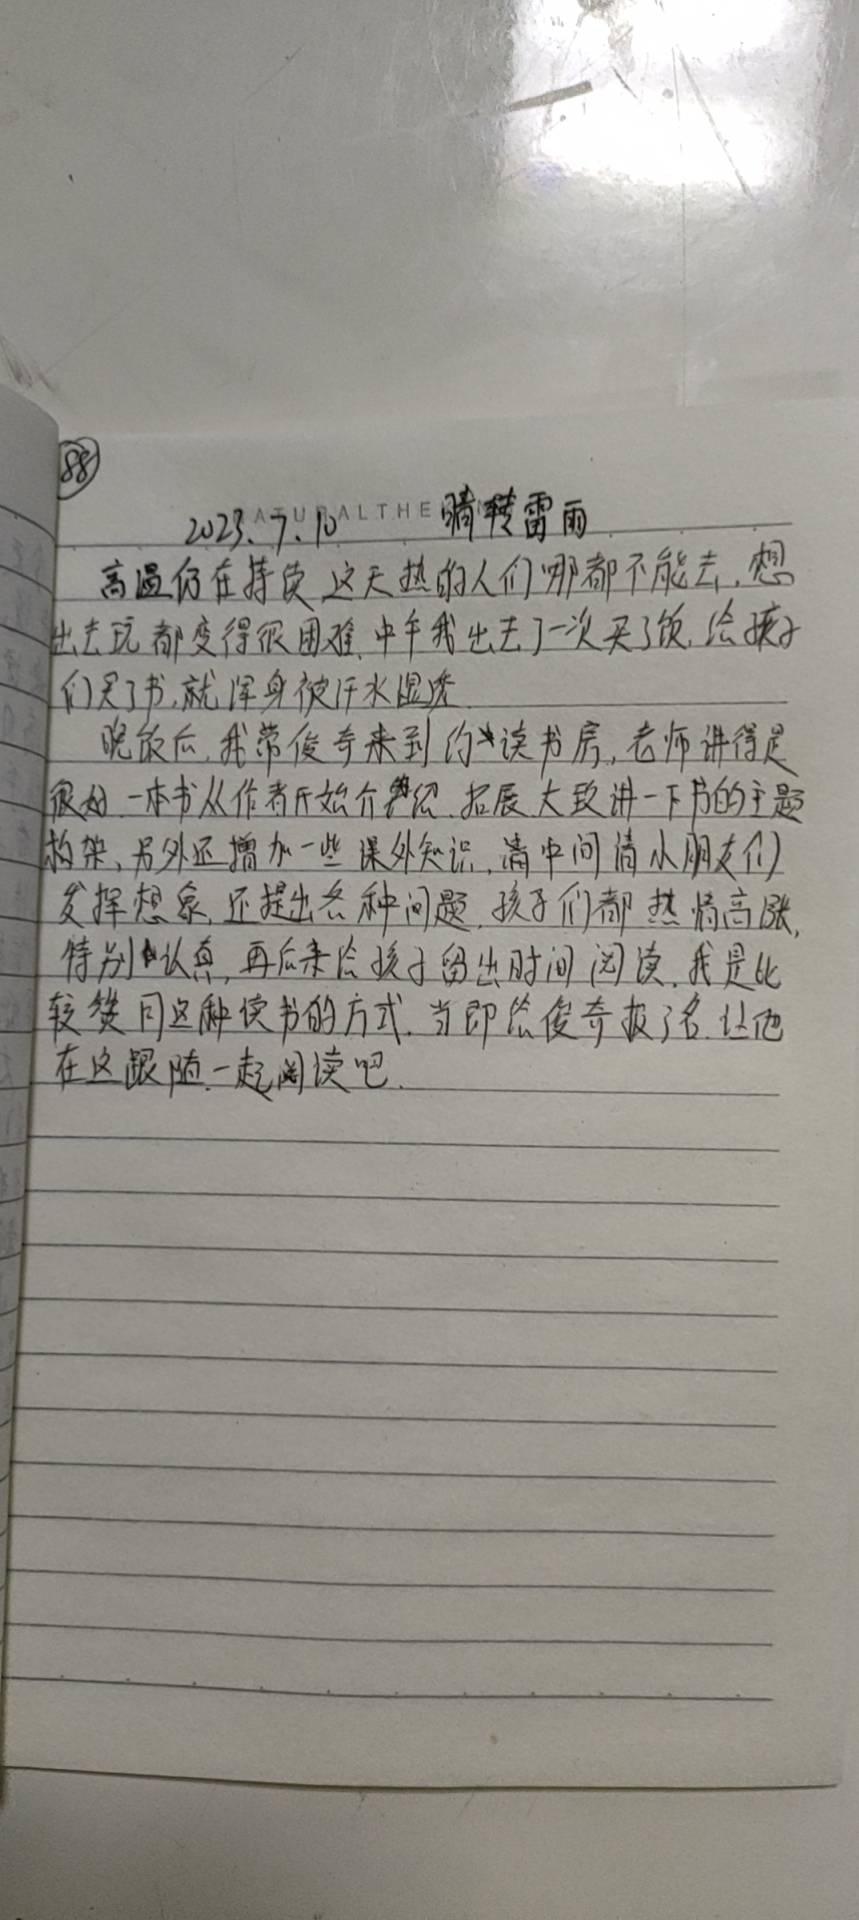 88
ATURALTHE
2023.7.10 晴转雷雨
高温仍在持续,这天热的人们哪都不能去,想
出去玩都变得很困难,中午我出去了一次买了饭,给孩子
们买了书,就浑身被汗水湿透.
晚饭后,我带俊奇来到约读书房,老师讲得是
很好,一本书从作者开始介绍,拓展大致讲一下书的主题
构架,另外还增加一些课外知识,中间请小朋友们
发挥想象,还提出各种问题,孩子们都热情高涨,
特别认真,再后来给孩子留出时间阅读,我是比
较赞同这种读书的方式,当即给俊奇报了名,让他
在这跟随一起阅读吧.